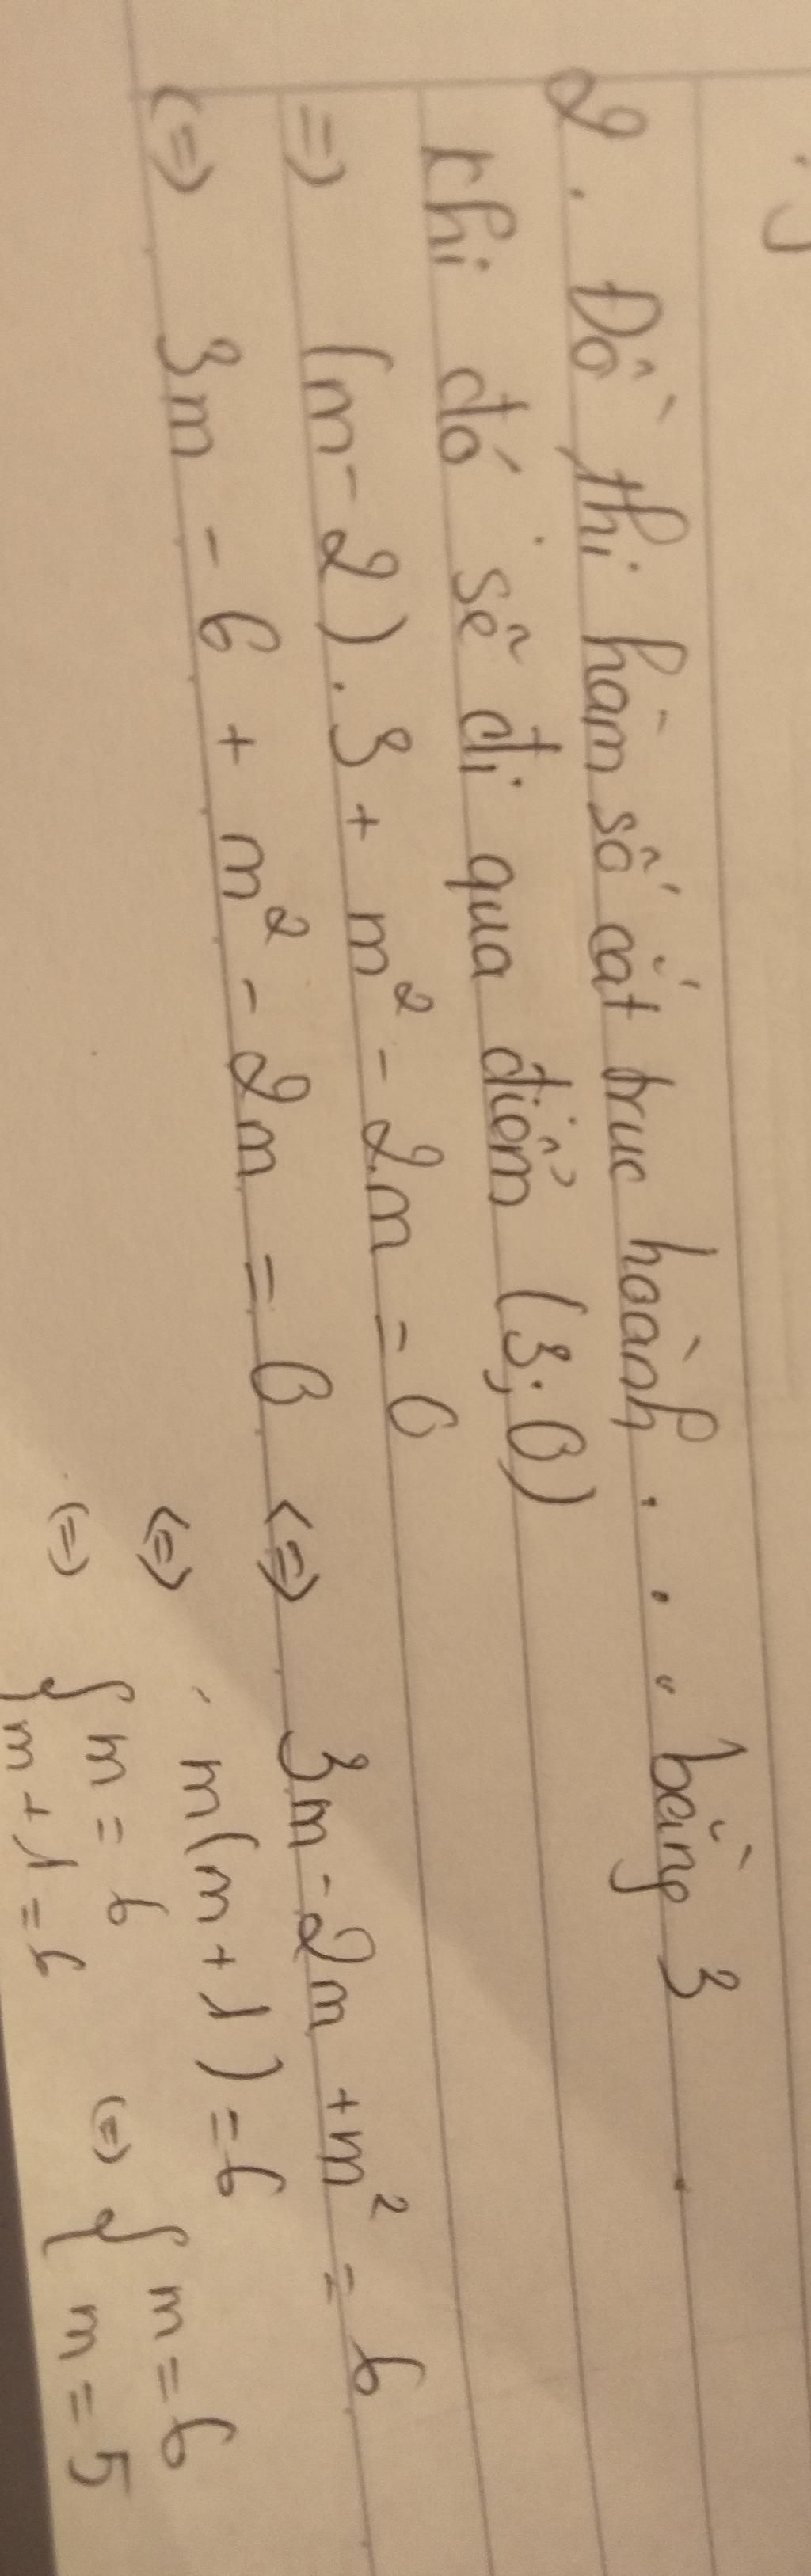 2. Đồ thị hàm số cắt trục hoành . . . bằng 3
khi đó sẽ đi qua điểm (3; 0)
=> (m - 2) . 3 + m² - 2m = 0
<=> 3m - 6 + m² - 2m = 0 <=> 3m - 2m + m² = 6
<=> m(m + 1) = 6
<=> { m = 6 <=> { m = 6
{ m + 1 = 6 { m = 5